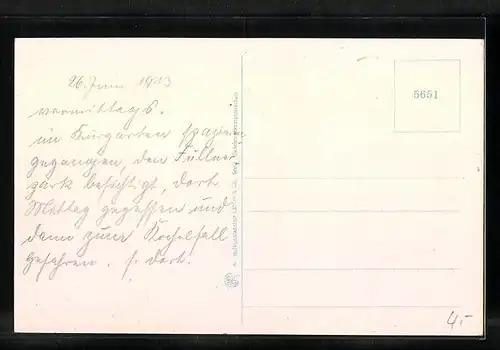 26. Juni 1913
vormittags.
im Kurgarten spazieren
gegangen, den Füllner
park besichtigt, dort
Mittag gegessen und
dann zum Kochelfall
gefahren. s. dort!
5651
4,-